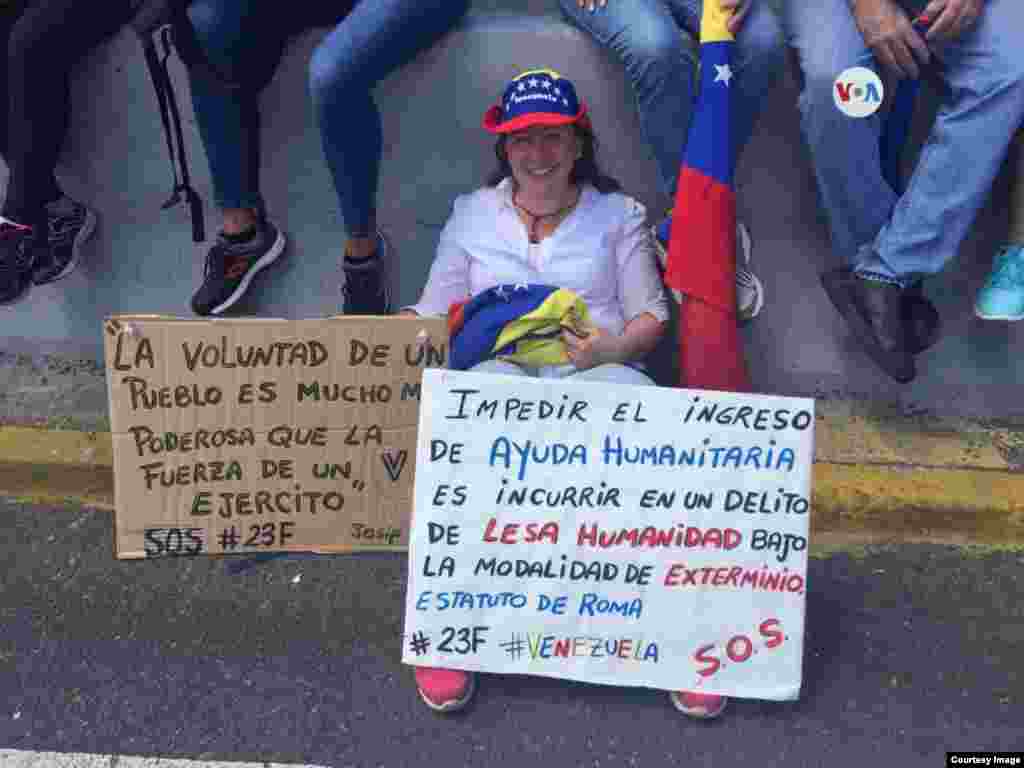 VOA
Venezuela
"LA VOLUNTAD DE UN
PUEBLO ES MUCHO M
PODEROSA QUE LA
FUERZA DE UN"
EJERCITO
SOS #23F
IMPEDIR EL INGRESO
DE AYUDA HUMANITARIA
ES INCURRIR EN UN DELITO
DE LESA HUMANIDAD BAJO
LA MODALIDAD DE EXTERMINIO,
ESTATUTO DE ROMA
#23F #VENEZUELA S.O.S.
Courtesy Image